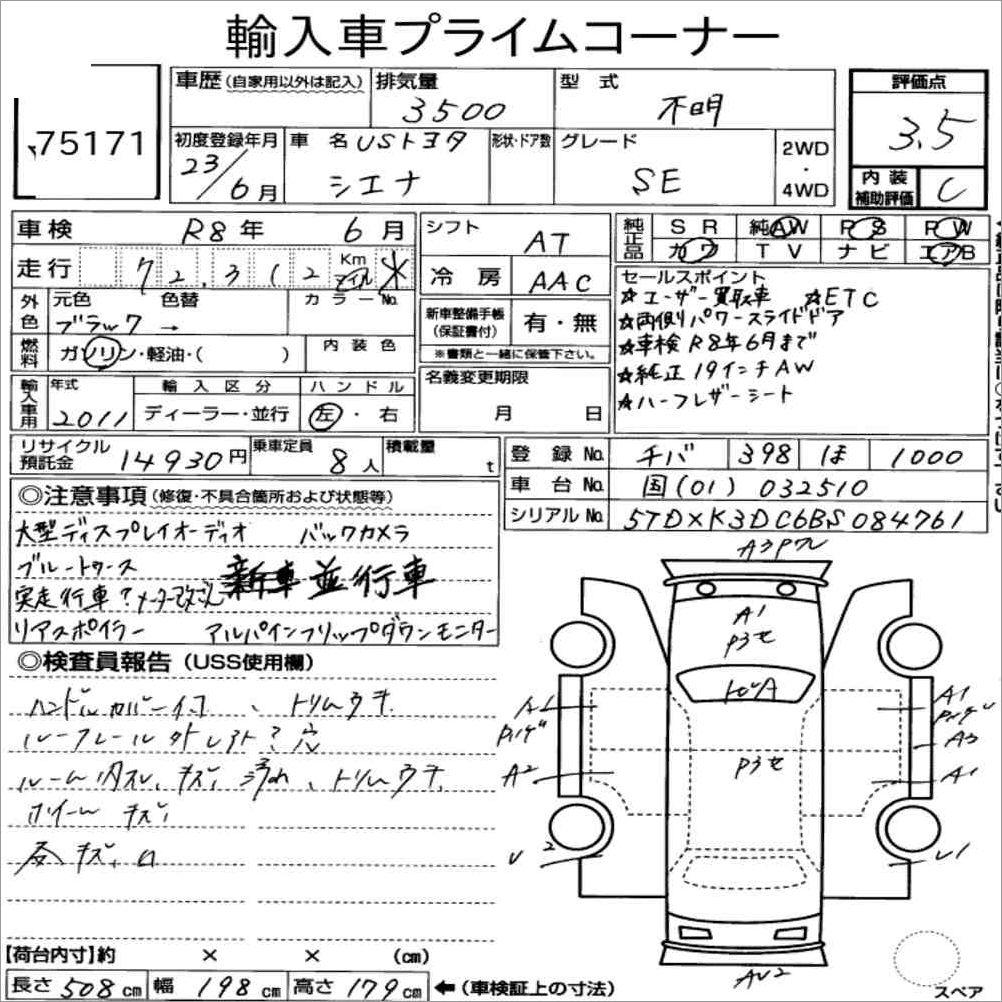 輸入車プライムコーナー
75171
車歴(自家用以外は記入) 排気量 3500 型式 不明 評価点 3.5
初度登録年月 23/6月 車名 USトヨタ シエナ 形状・ドア数 グレード SE 2WD・4WD 内装補助評価 C
車検 R8年 6月 シフト AT 純正品 SR 純AW PS PW
走行 72,312 Km マイル 冷房 AAC カワ TV ナビ エアB
外色 元色 ブラック → 色替 カラーNo. 新車整備手帳(保証書付) 有・無
燃料 ガソリン・軽油・( ) 内装色 ※書類と一緒に保管下さい。
セールスポイント
☆ユーザー買取車 ☆ETC
☆両側パワースライドドア
☆車検R8年6月まで
☆純正19インチAW
☆ハーフレザーシート
輸入車用 年式 2011 輸入区分 ディーラー・並行 ハンドル 左・右 名義変更期限 月 日
リサイクル預託金 14930円 乗車定員 8人 積載量 t
登録No. チバ 398 ほ 1000
車台No. 国(01)032510
シリアルNo. 5TDXK3DC6BS084761
◎注意事項(修復・不具合箇所および状態等)
大型ディスプレイオーディオ バックカメラ
ブルートゥース 新車並行車
実走行車 メーター改ざん
リアスポイラー アルパインフリップダウンモニター
◎検査員報告(USS使用欄)
トリムウチ
ルーフレール
キズ、汚れ、トリムウチ
ホイール キズ
キズ、凹
A1
A1
P3セ
P3セ
A1
A3
A2
A1
U2
U1
AU2
【荷台内寸】約 × × (cm)
長さ508cm 幅198cm 高さ179cm ←(車検証上の寸法)
スペア